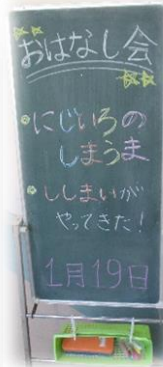 おはなし会
にじいろの
しまうま
ししまいが
やってきた!
1月19日